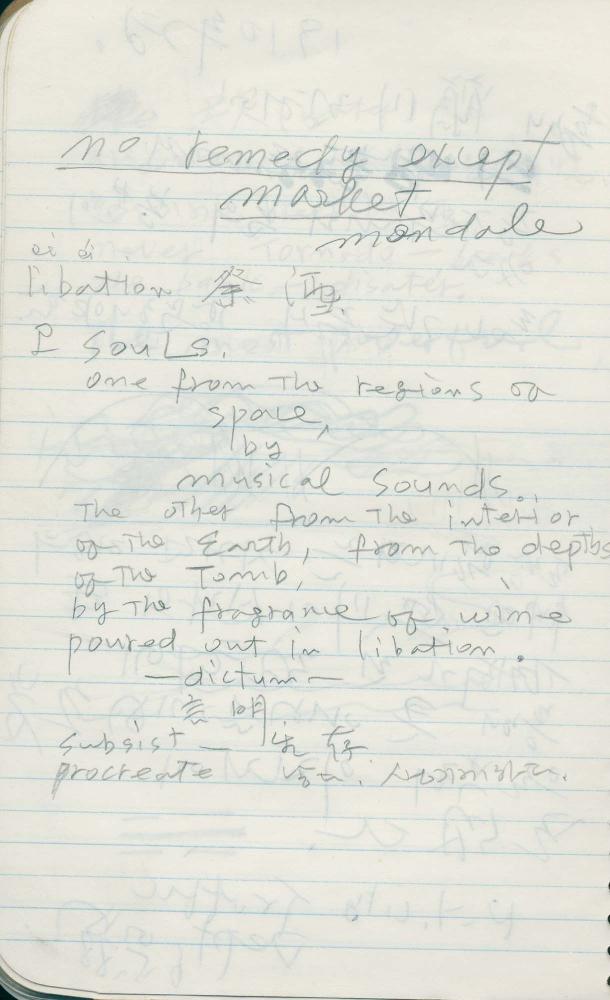 no remedy except
market
mondale
libation 祭 酒
2 souls.
one from the regions of
space,
by
musical sounds.
The other from the interior
of the Earth, from the depths
of the Tomb,
by the fragrance of wine
poured out in libation.
—dictum—
言明
subsist —
procreate 낳다.